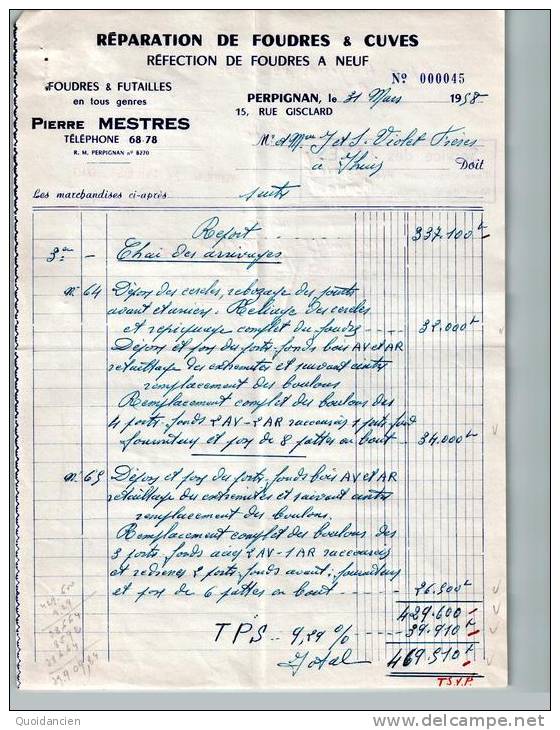 RÉPARATION DE FOUDRES & CUVES
RÉFECTION DE FOUDRES A NEUF
Nº 000045
FOUDRES & FUTAILLES
en tous genres
PERPIGNAN, le 31 Mars 1958
15, RUE GISCLARD
PIERRE MESTRES
TÉLÉPHONE 68-78
R. M. PERPIGNAN nº 8270
Mr et Mme J et S. Violet Frères
à Thuir Doit
Les marchandises ci-après
suite
Report 337.100
3ème - Chai des arrivages
Nº 64 Dépose des cercles, rebozage des joints
avant et arrière. Reliage des cercles
et repiquage complet du foudre 32.000
Dépose et pose des ports-fonds bois AV et AR
retaillage des extremités et suivant cintre
remplacement des boulons
Remplacement complet des boulons des
4 ports-fonds 2 AV - 2 AR raccourcis 1 port fond
fourniture et pose de 8 pattes en bout 34.000
Nº 65 Dépose et pose des ports-fonds bois AV et AR
retaillage des extremités et suivant cintre
remplacement des boulons.
Remplacement complet des boulons des
3 ports-fonds acier 2 AV - 1 AR raccourcis
et redressé 2 ports-fonds avant. fourniture
et pose de 6 pattes en bout 26.500
429.600
TPS 9,29 % 39.910
Total 469.510
T.S.V.P.
Quoidancien
www.delcampe.net